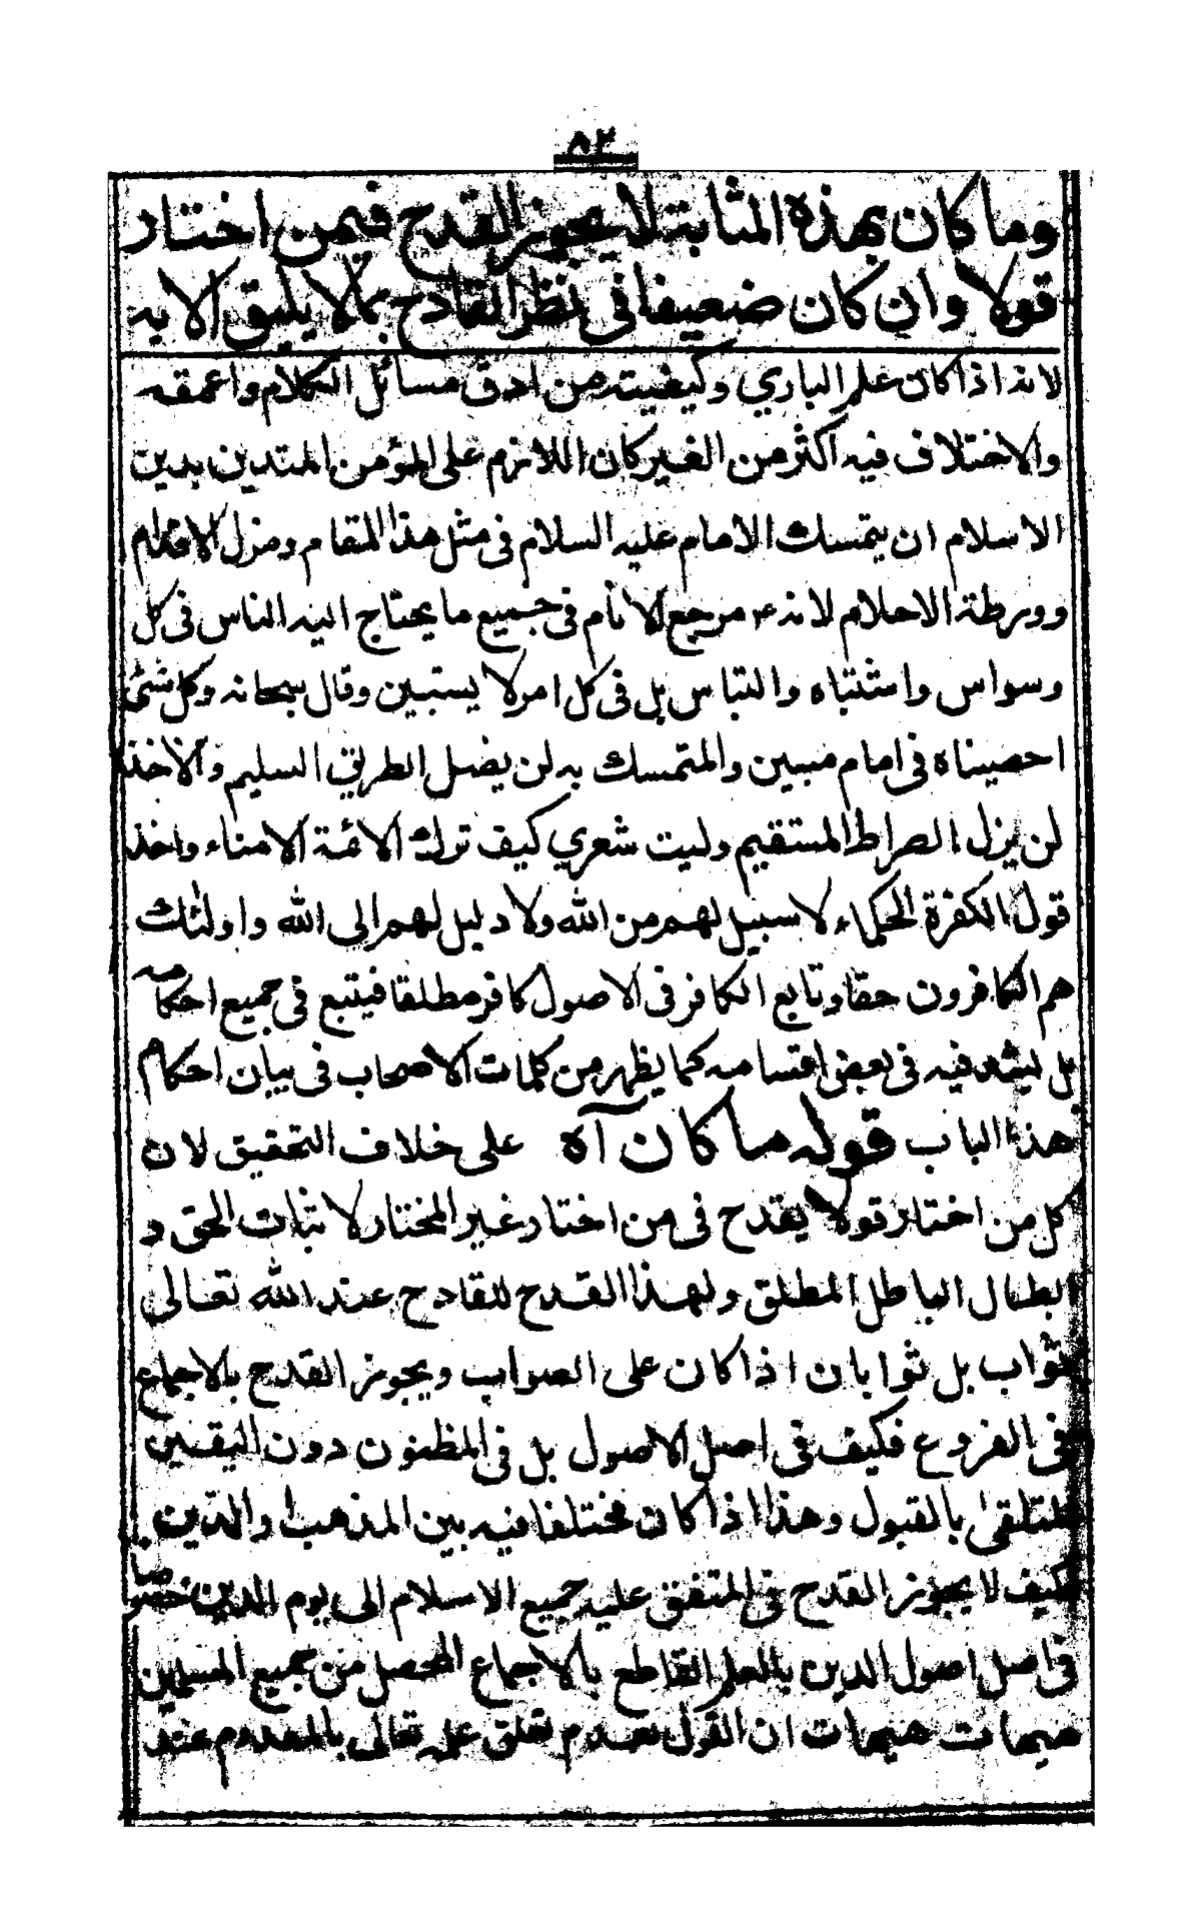 ٨٢
وما كان بهذه المثابة لا يجوز القدح فيمن اختار
قولا وان كان ضعيفا فى نظر القادح بما لا يليق الا به
لانه اذا كان علم الباري وكيفيته من ادق مسائل الكلام واعمقه
والاختلاف فيه اكثر من الغير كان اللازم على المؤمن المتدين بدين
الاسلام ان يتمسك الامام عليه السلام فى مثل هذا المقام ومزل الاقدام
وورطة الاحلام لانه ع مرجع الانام فى جميع ما يحتاج اليه الناس فى كل
وسواس واشتباه والتباس بل فى كل امر لا يستبين وقال سبحانه وكل شئ
احصيناه فى امام مبين والمتمسك به لن يضل الطريق السليم والآخذ
لن يزل الصراط المستقيم وليت شعري كيف ترك الائمة الامناء واخذ
قول الكفرة الحكماء لا سبيل لهم من الله ولا دليل لهم الى الله واولئك
هم الكافرون حقا وتابع الكافر فى الاصول كافر مطلقا فيتبع فى جميع احكامه
بل فيه فى بعض اقسامه كما يظهر من كلمات الاصحاب فى بيان احكام
هذا الباب قوله ما كان آه على خلاف التحقيق لان
كل من اختار قولا يقدح فى من اختار غير المختار لاثبات الحق و
ابطال الباطل المطلق ولهذا القدح للقادح عند الله تعالى
ثواب بل ثوابان اذا كان على الصواب ويجوز القدح بالاجماع
فى الفروع فكيف فى اصل الاصول بل فى المظنون دون اليقين
المتلقى بالقبول وهذا اذا كان مختلفا فيه بين المذهب والدين
فكيف لا يجوز القدح فى المتفق عليه جميع الاسلام الى يوم الدين خصوصا
فى اصل اصول الدين بالعلم القاطع بالاجماع المحصل من جميع المسلمين
هيهات هيهات ان القول بعدم تعلق علمه تعالى بالمعدوم عند